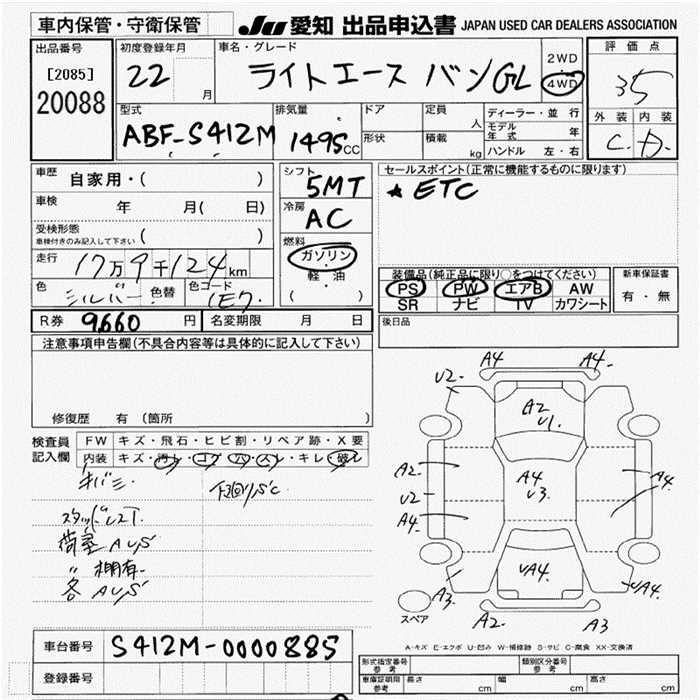 車内保管・守衛保管
JU 愛知 出品申込書 JAPAN USED CAR DEALERS ASSOCIATION
出品番号
[2085]
20088
初度登録年月
22
月
車名・グレード
ライトエース バン GL
2WD
・
4WD
評価点
3.5
外装 内装
C D
型式
ABF-S412M
排気量
1495cc
ドア
形状
定員
人
積載
kg
ディーラー・並行
モデル年式 年
ハンドル 左・右
車歴
自家用・( )
車検
年 月( 日)
受検形態
車検付きのみ記入して下さい ( )
走行
17万9千124km
色
シルバー
色替
色コード
1E7
シフト
5MT
冷房
AC
燃料
ガソリン
・
軽・油
( )
セールスポイント(正常に機能するものに限ります)
★ ETC
装備品(純正品に限り○をつけてください)
PS PW エアB AW
SR ナビ TV カワシート
新車保証書
有・無
R券 9,660 円
名変期限 月 日
後日品
注意事項申告欄(不具合内容等は具体的に記入して下さい)
修復歴 有 (箇所 )
検査員
記入欄
FW キズ・飛石・ヒビ割・リペア跡・X要
内装 キズ・汚レ・コゲ・穴・スレ・キレ・破レ
キバミ
下回りS.C
荷室 AUS
〃 棚有
各 AUS
A4 A4
U2
A2
U1
A2 A4 A4
U2 U3
A4
UA4 UA4
A3
A2 A3
スペア
A-キズ E-エクボ U-凹み W-補修跡 S-サビ C-腐食 XX-交換済
車台番号
S412M-0000885
登録番号
形式指定番号
参考
類別区分番号
参考
車庫証明用
参考
長さ cm 幅 cm 高さ cm